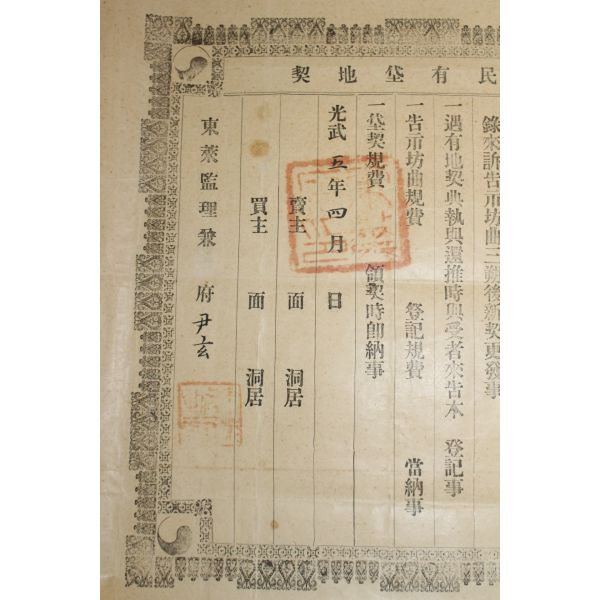 契地垈有民
錄來訴告示坊曲三報後新契更發事
一遇有地契典執與還推時與受者來告本 登記事
一告示坊曲規費 登記規費 當納事
一垈契規費 領契時卽納事
光武五年四月 日
賣主 面 洞居
買主 面 洞居
東萊監理兼 府尹玄